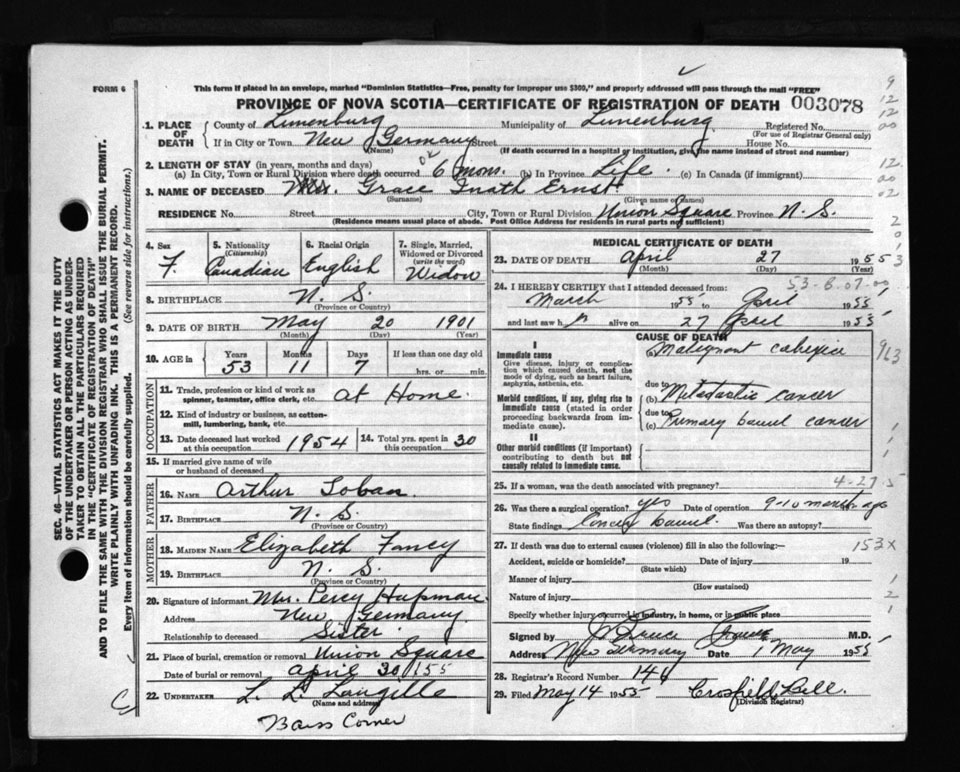 FORM 6
This form if placed in an envelope, marked "Dominion Statistics—Free, penalty for improper use $300," and properly addressed will pass through the mail "FREE"
PROVINCE OF NOVA SCOTIA—CERTIFICATE OF REGISTRATION OF DEATH 003078
1. PLACE OF DEATH County of Lunenburg Municipality of Lunenburg Registered No.
(For use of Registrar General only)
If in City or Town New Germany Street House No.
(Name) (If death occurred in a hospital or institution, give the name instead of street and number)
2. LENGTH OF STAY (in years, months and days)
(a) In City, Town or Rural Division where death occurred 6 mons. (b) In Province Life. (c) In Canada (if immigrant)
3. NAME OF DECEASED Mrs. Grace Inath Ernst
(Surname) (Given name or names)
RESIDENCE No. Street City, Town or Rural Division Union Square Province N. S.
(Residence means usual place of abode. Post Office Address for residents in rural parts not sufficient)
4. Sex F.
5. Nationality (Citizenship) Canadian
6. Racial Origin English
7. Single, Married, Widowed or Divorced (write the word) Widow
8. BIRTHPLACE N. S.
(Province or Country)
9. DATE OF BIRTH May 20 1901
(Month) (Day) (Year)
10. AGE in Years 53 Months 11 Days 7 If less than one day old hrs. or min.
OCCUPATION
11. Trade, profession or kind of work as spinner, teamster, office clerk, etc. at Home.
12. Kind of industry or business, as cotton-mill, lumbering, bank, etc.
13. Date deceased last worked at this occupation 1954 14. Total yrs. spent in this occupation 30
15. If married give name of wife or husband of deceased
FATHER
16. NAME Arthur Joban
17. BIRTHPLACE N. S.
(Province or Country)
MOTHER
18. MAIDEN NAME Elizabeth Fancy
19. BIRTHPLACE N. S.
(Province or Country)
20. Signature of informant Mrs. Percy Hapman
Address New Germany
Relationship to deceased Sister
21. Place of burial, cremation or removal Union Square
Date of burial or removal april 30 / 55
22. UNDERTAKER L. L. Langille
(Name and address)
Barss Corner
MEDICAL CERTIFICATE OF DEATH
23. DATE OF DEATH april 27 1955
(Month) (Day) (Year)
24. I HEREBY CERTIFY that I attended deceased from:
March 1955 to April 1955
and last saw h alive on 27 April 1955
CAUSE OF DEATH
I
Immediate cause
Give disease, injury or complication which caused death, not the mode of dying, such as heart failure, asphyxia, asthenia, etc.
(a) Malignant cahexia
Morbid conditions, if any, giving rise to immediate cause (stated in order proceeding backwards from immediate cause).
due to
(b) Metastatic cancer
due to
(c) Primary bowel cancer
II
Other morbid conditions (if important) contributing to death but not causally related to immediate cause.
25. If a woman, was the death associated with pregnancy?
26. Was there a surgical operation? yes Date of operation 9-10 months ago
State findings bowel. Was there an autopsy?
27. If death was due to external causes (violence) fill in also the following:—
153X
Accident, suicide or homicide? Date of injury 19
(State which)
Manner of injury
(How sustained)
Nature of injury
Specify whether injury occurred in industry, in home, or in public place
Signed by M.D.
Address New Germany Date 1 May 1955
28. Registrar's Record Number 146
29. Filed May 14 1955 Crosfield Bell.
(Division Registrar)
SEC. 46—VITAL STATISTICS ACT MAKES IT THE DUTY
OF THE UNDERTAKER OR PERSON ACTING AS UNDER-
TAKER TO OBTAIN ALL THE PARTICULARS REQUIRED
IN THE "CERTIFICATE OF REGISTRATION OF DEATH"
AND TO FILE THE SAME WITH THE DIVISION REGISTRAR WHO SHALL ISSUE THE BURIAL PERMIT.
WRITE PLAINLY WITH UNFADING INK. THIS IS A PERMANENT RECORD.
Every item of information should be carefully supplied. (See reverse side for instructions.)